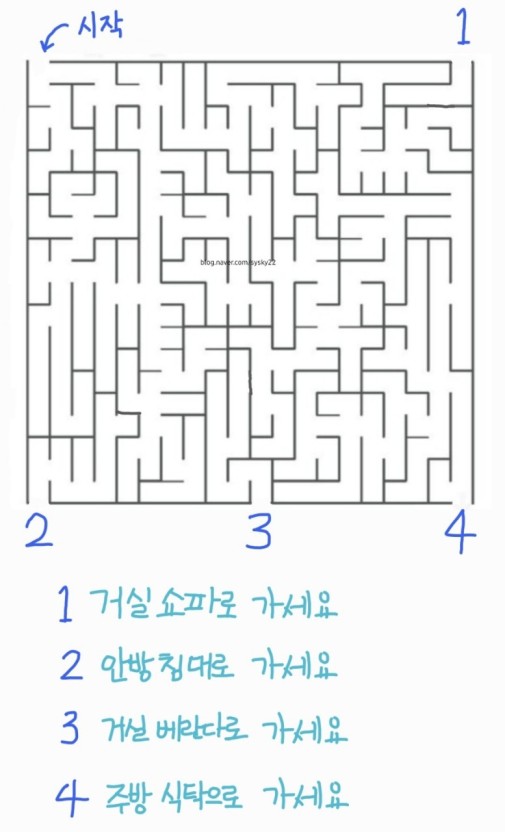 시작
1
blog.naver.com/sysky22
2 3 4
1 거실 쇼파로 가세요
2 안방 침대로 가세요
3 거실 베란다로 가세요
4 주방 식탁으로 가세요